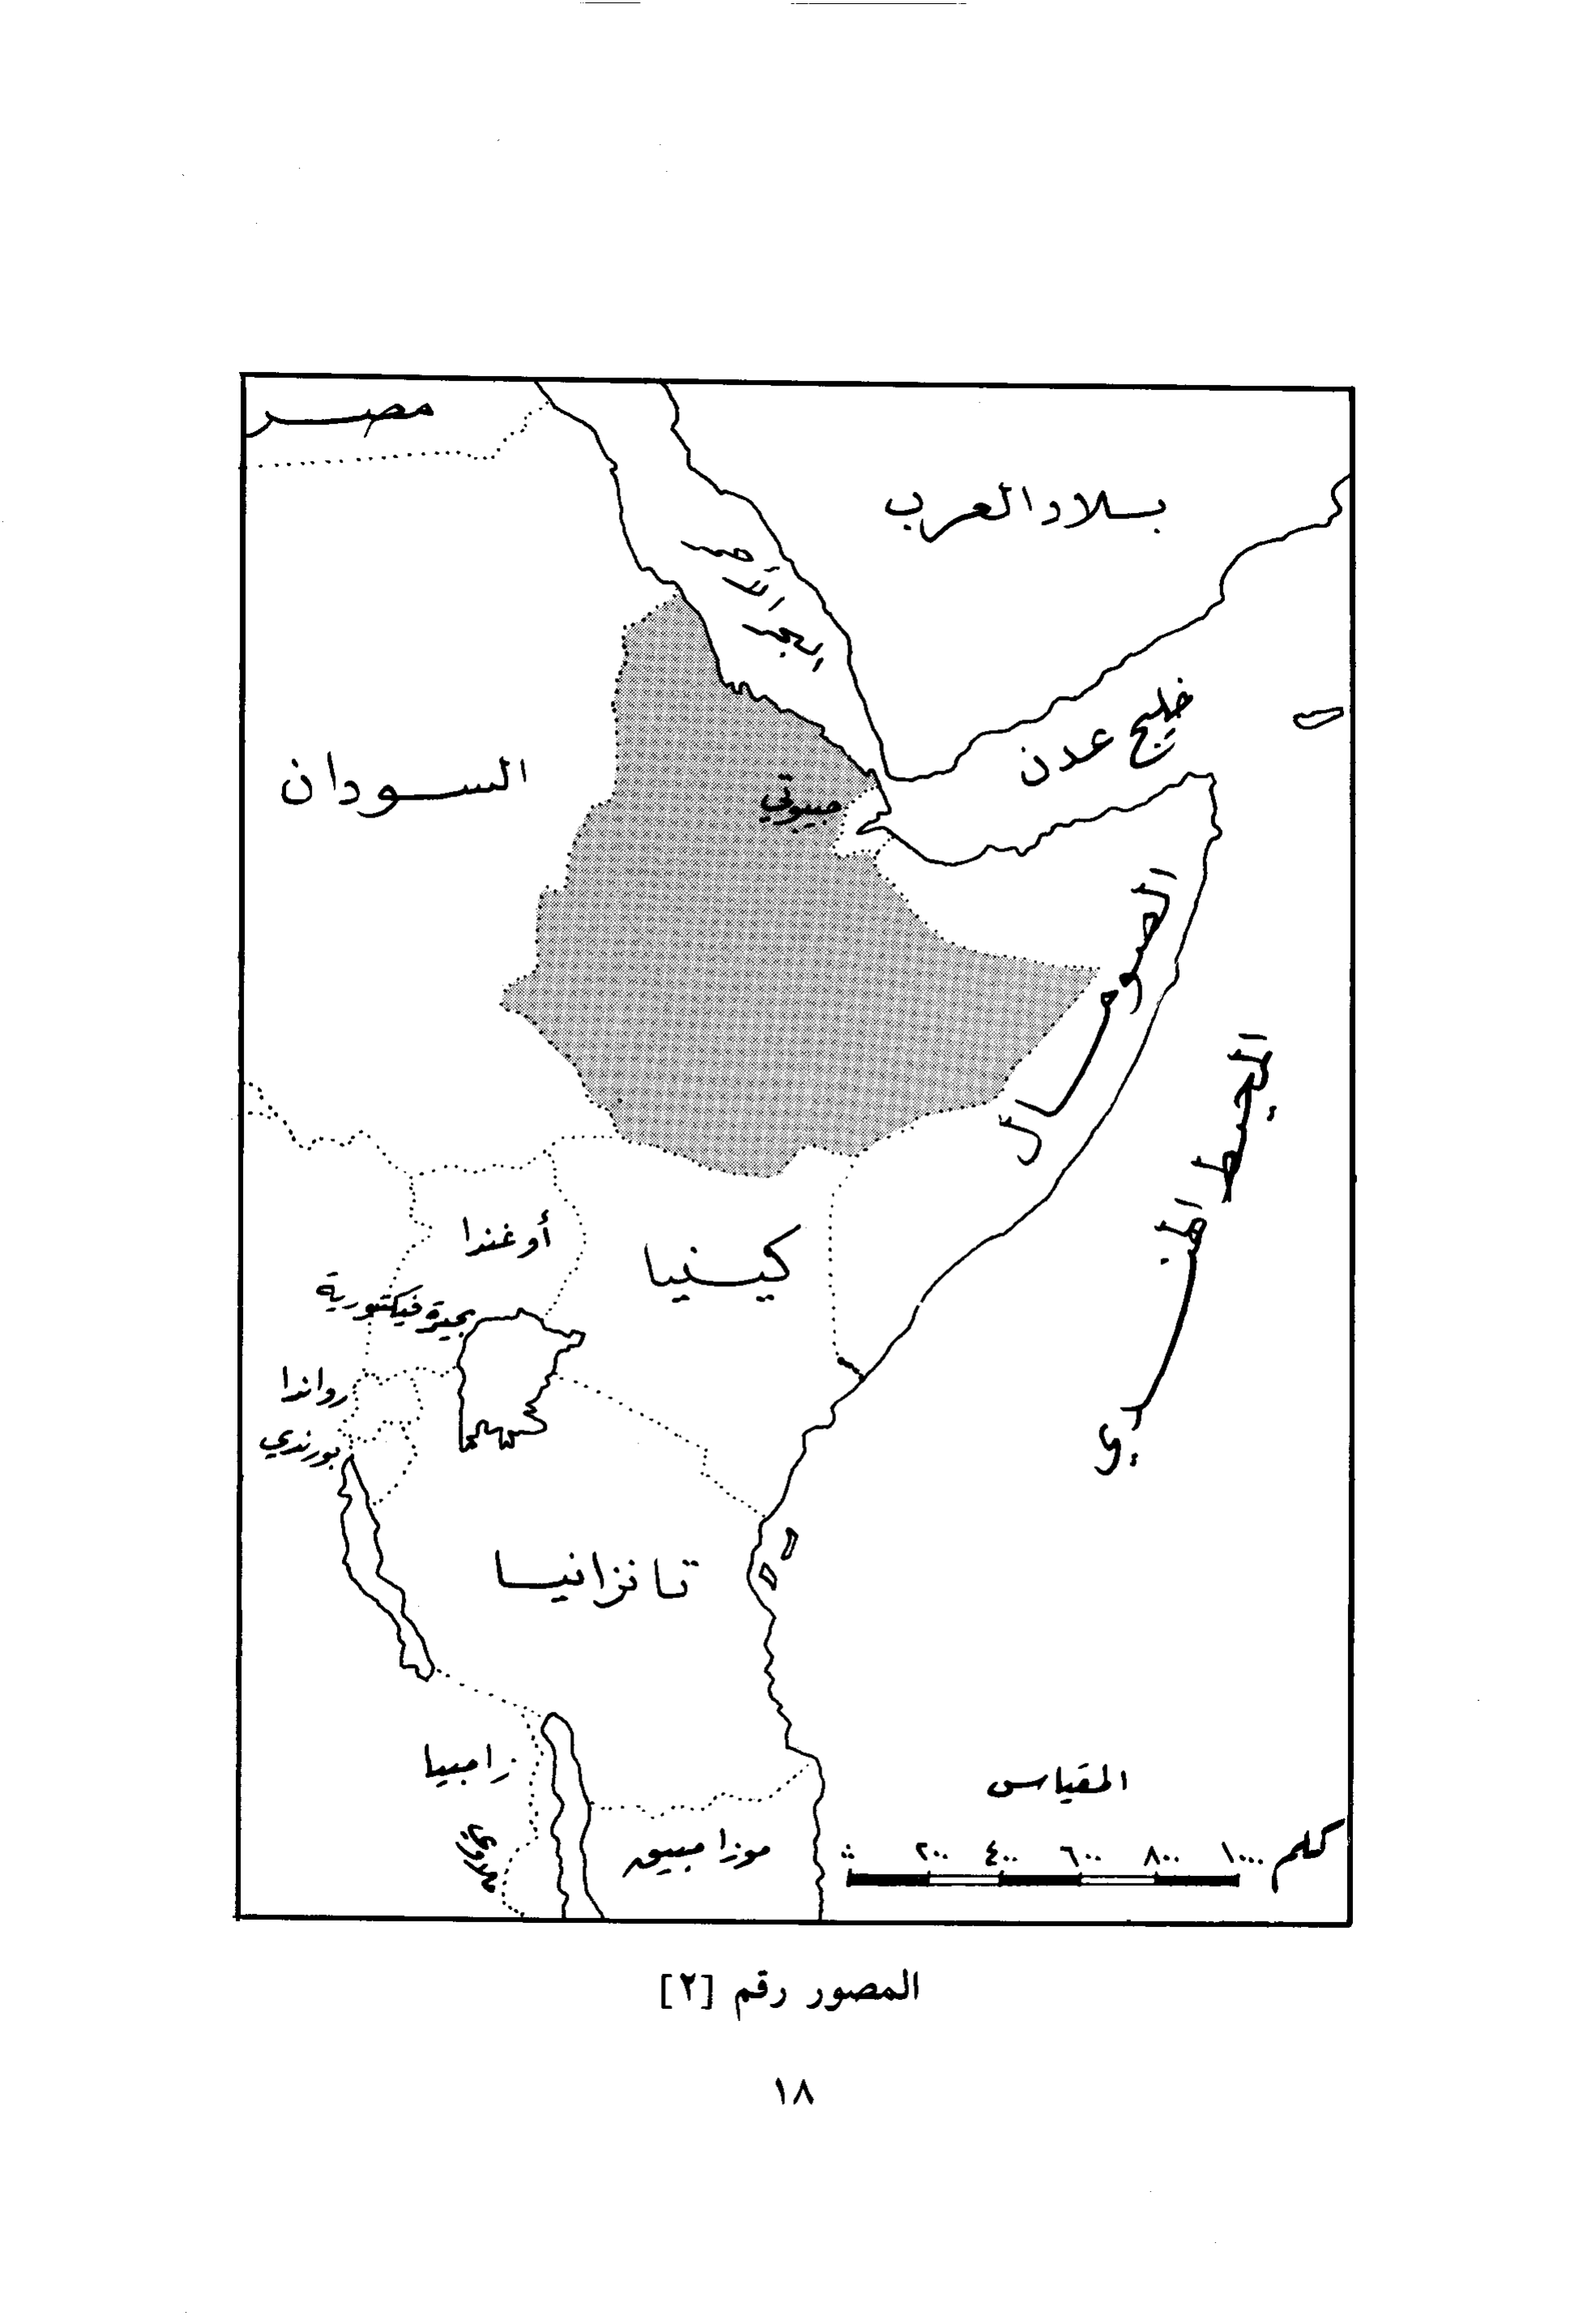 مصر
بلاد العرب
البحر
الأحمر
خليج عدن
السودان
جيبوتي
الصومال
المحيط الهندي
أوغندا
كينيا
بحيرة فيكتورية
رواندا
بورندي
تانزانيا
زامبيا
موزامبيق
المقياس
٢٠٠ ٤٠٠ ٦٠٠ ٨٠٠ ١٠٠٠ كلم
المصور رقم [٢]
١٨